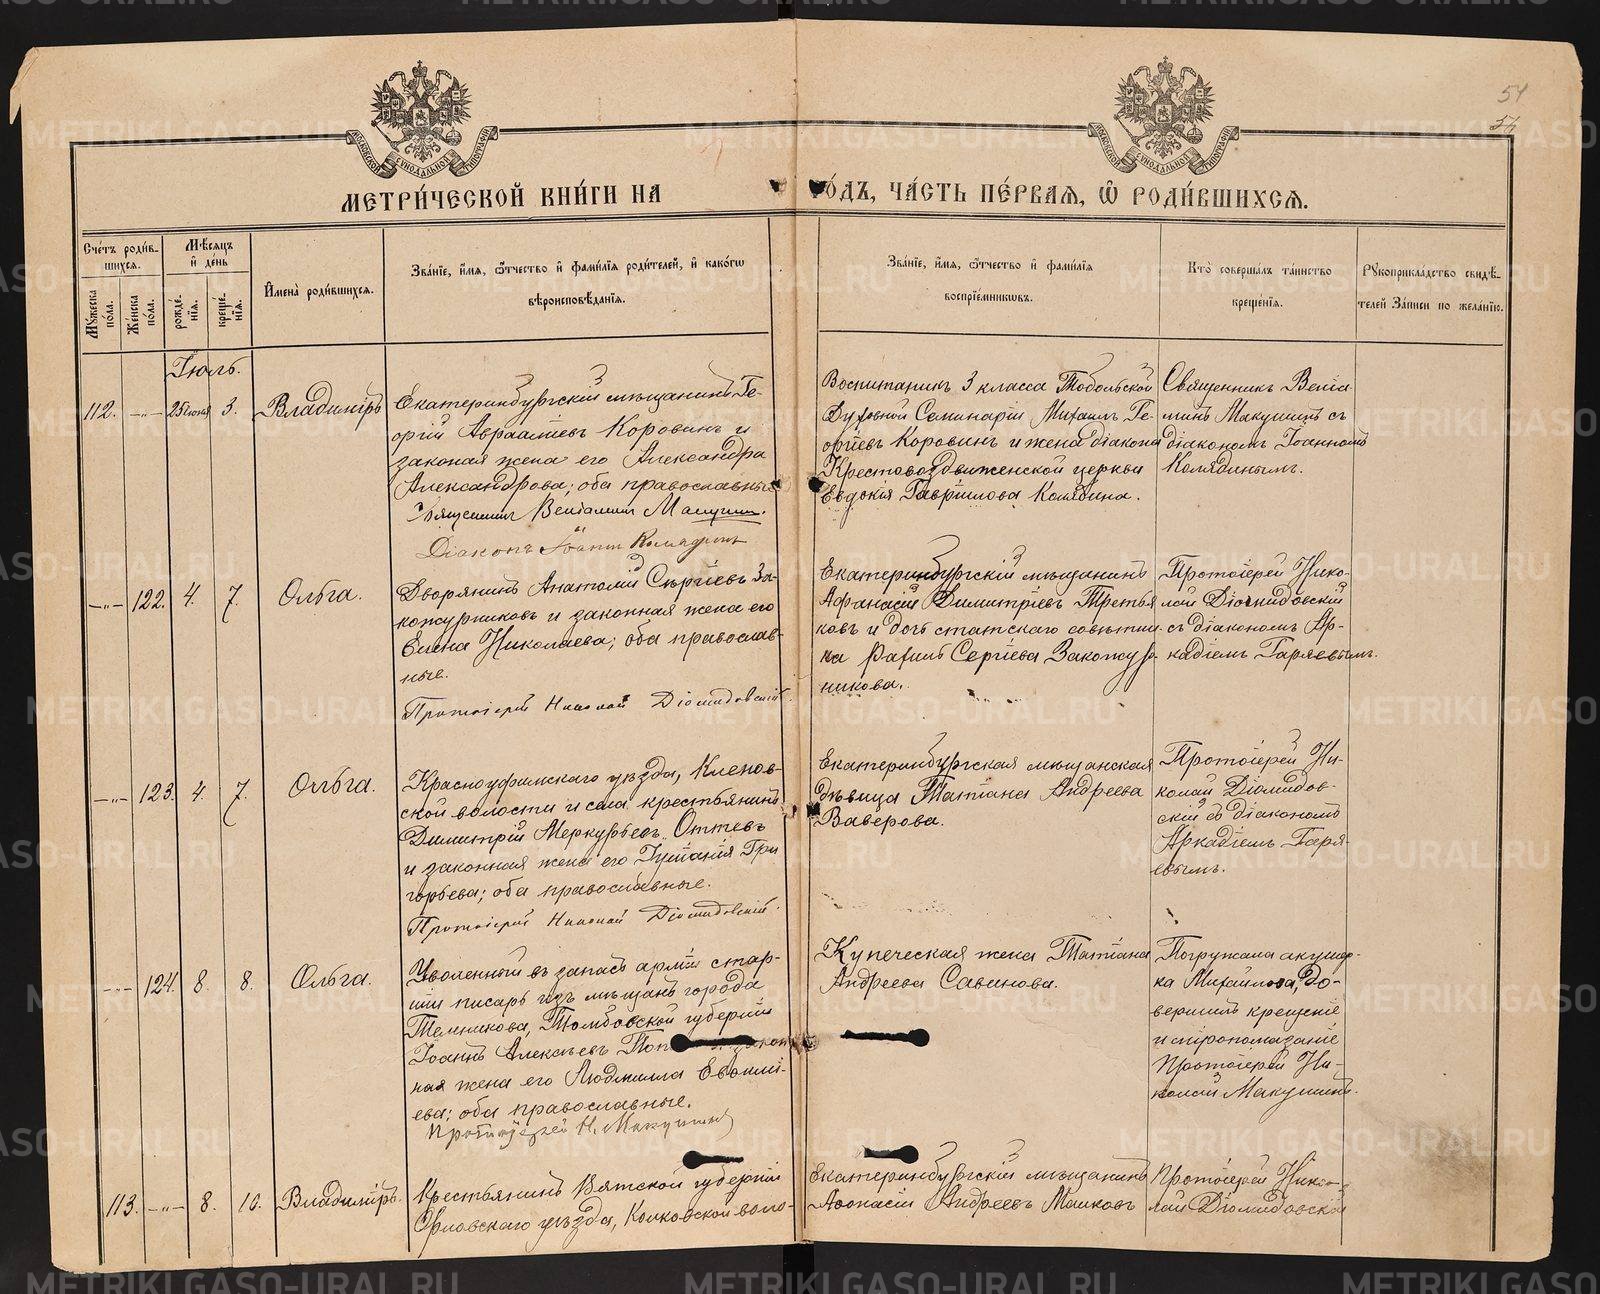 54
56
МОСКОВСКОЙ СѴНОДАЛЬНОЙ ТИПОГРАФІИ
МОСКОВСКОЙ СѴНОДАЛЬНОЙ ТИПОГРАФІИ
МЕТРИ́ЧЕСКОЙ КНИ́ГИ НА
ГО́ДЪ, ЧА́СТЬ ПЕ́РВАЯ, Ѡ РОДИ́ВШИХСЯ.
Сче́тъ роди́в-
шихся.
Мѣ́сяцъ
и де́нь
Му́жеска по́ла.
Же́нска по́ла.
рожде́-
нія.
креще́-
нія.
Имена̀ роди́вшихся.
Зва́ніе, и́мя, ѻ́тчество и фами́лія роди́телей, и како́гѡ
вѣроисповѣ́данія.
Зва́ніе, и́мя, ѻ́тчество и фами́лія
воспріе́мниковъ.
Кто̀ соверша́лъ та́инство
креще́нія.
Рукоприкла́дство свидѣ́-
телей за́писи по жела́нію.
Іюль.
112. —„— 25 іюня 3. Владиміръ
Екатеринбургскій мѣщанинъ Ге-
оргій Авраамiевъ Коровинъ и
законая жена его Александра
Александрова; оба православные
Священникъ Веніаминъ Макушинъ.
Діаконъ Іоаннъ Колядинъ
Воспитаникъ 3 класса Тобольской
Духовной Семинаріи Михаилъ Ге-
оргіевъ Коровинъ и жена діакона
Крестовоздвиженской церкви
Евдокія Гавріилова Колядина.
Священникъ Веніа
минъ Макушинъ съ
діакономъ Іоанномъ
Колядинымъ.
—„— 122. 4. 7. Ольга.
Дворянинъ Анатолій Сергіевъ За-
кожурниковъ и законная жена его
Елена Николаева; оба православ-
ные.
Протоіерей Николай Діомидовскій.
Екатеринбургскій мѣщанинъ
Афанасій Димитріевъ Третья
ковъ и дочь статскаго совѣтни-
ка Сергіева Закожур-
никова.
Протоіерей Нико-
лай Діомидовскій
съ діакономъ Ар-
кадіемъ Гаряевымъ.
—„— 123. 4. 7. Ольга.
Красноуфимскаго уѣзда, Кленов-
ской волости и села крестьянинъ
Димитрій Меркурьевъ Оттевъ
и законная жена его Іуліанія Гри
горьева; оба православные.
Протоіерей Николай Діомидовскій.
Екатеринбургская мѣщанская
дѣвица Татіана Андреева
Ваверова.
Протоіерей Ни-
колай Діомидов-
скій съ діакономъ
Аркадіемъ Гаря-
евымъ.
—„— 124. 8. 8. Ольга.
Уволенный въ запасъ арміи стар-
шій писарь изъ мѣщанъ города
Темникова, Томбовской губерніи
Іоаннъ Алексѣевъ
ная жена его Людмилла Евѳимі-
ева; оба православные.
Протоіерей Н. Макушинъ
Купеческая жена Татіана
Андреева Саванова.
Погружала акушер-
ка Михайлова, до-
вершилъ крещеніе
и мѵропомазаніе
Протоіерей Ни-
колай Макушинъ.
113. —„— 8. 10. Владиміръ.
Крестьянинъ Вятской губерніи
Орловскаго уѣзда, Колковской воло-
Екатеринбургскій мѣщанинъ
Аѳонасій Андреевъ Малковъ
Протоіерей Нико-
лай Діомидовскій
METRIKI.GASO-URAL.RU